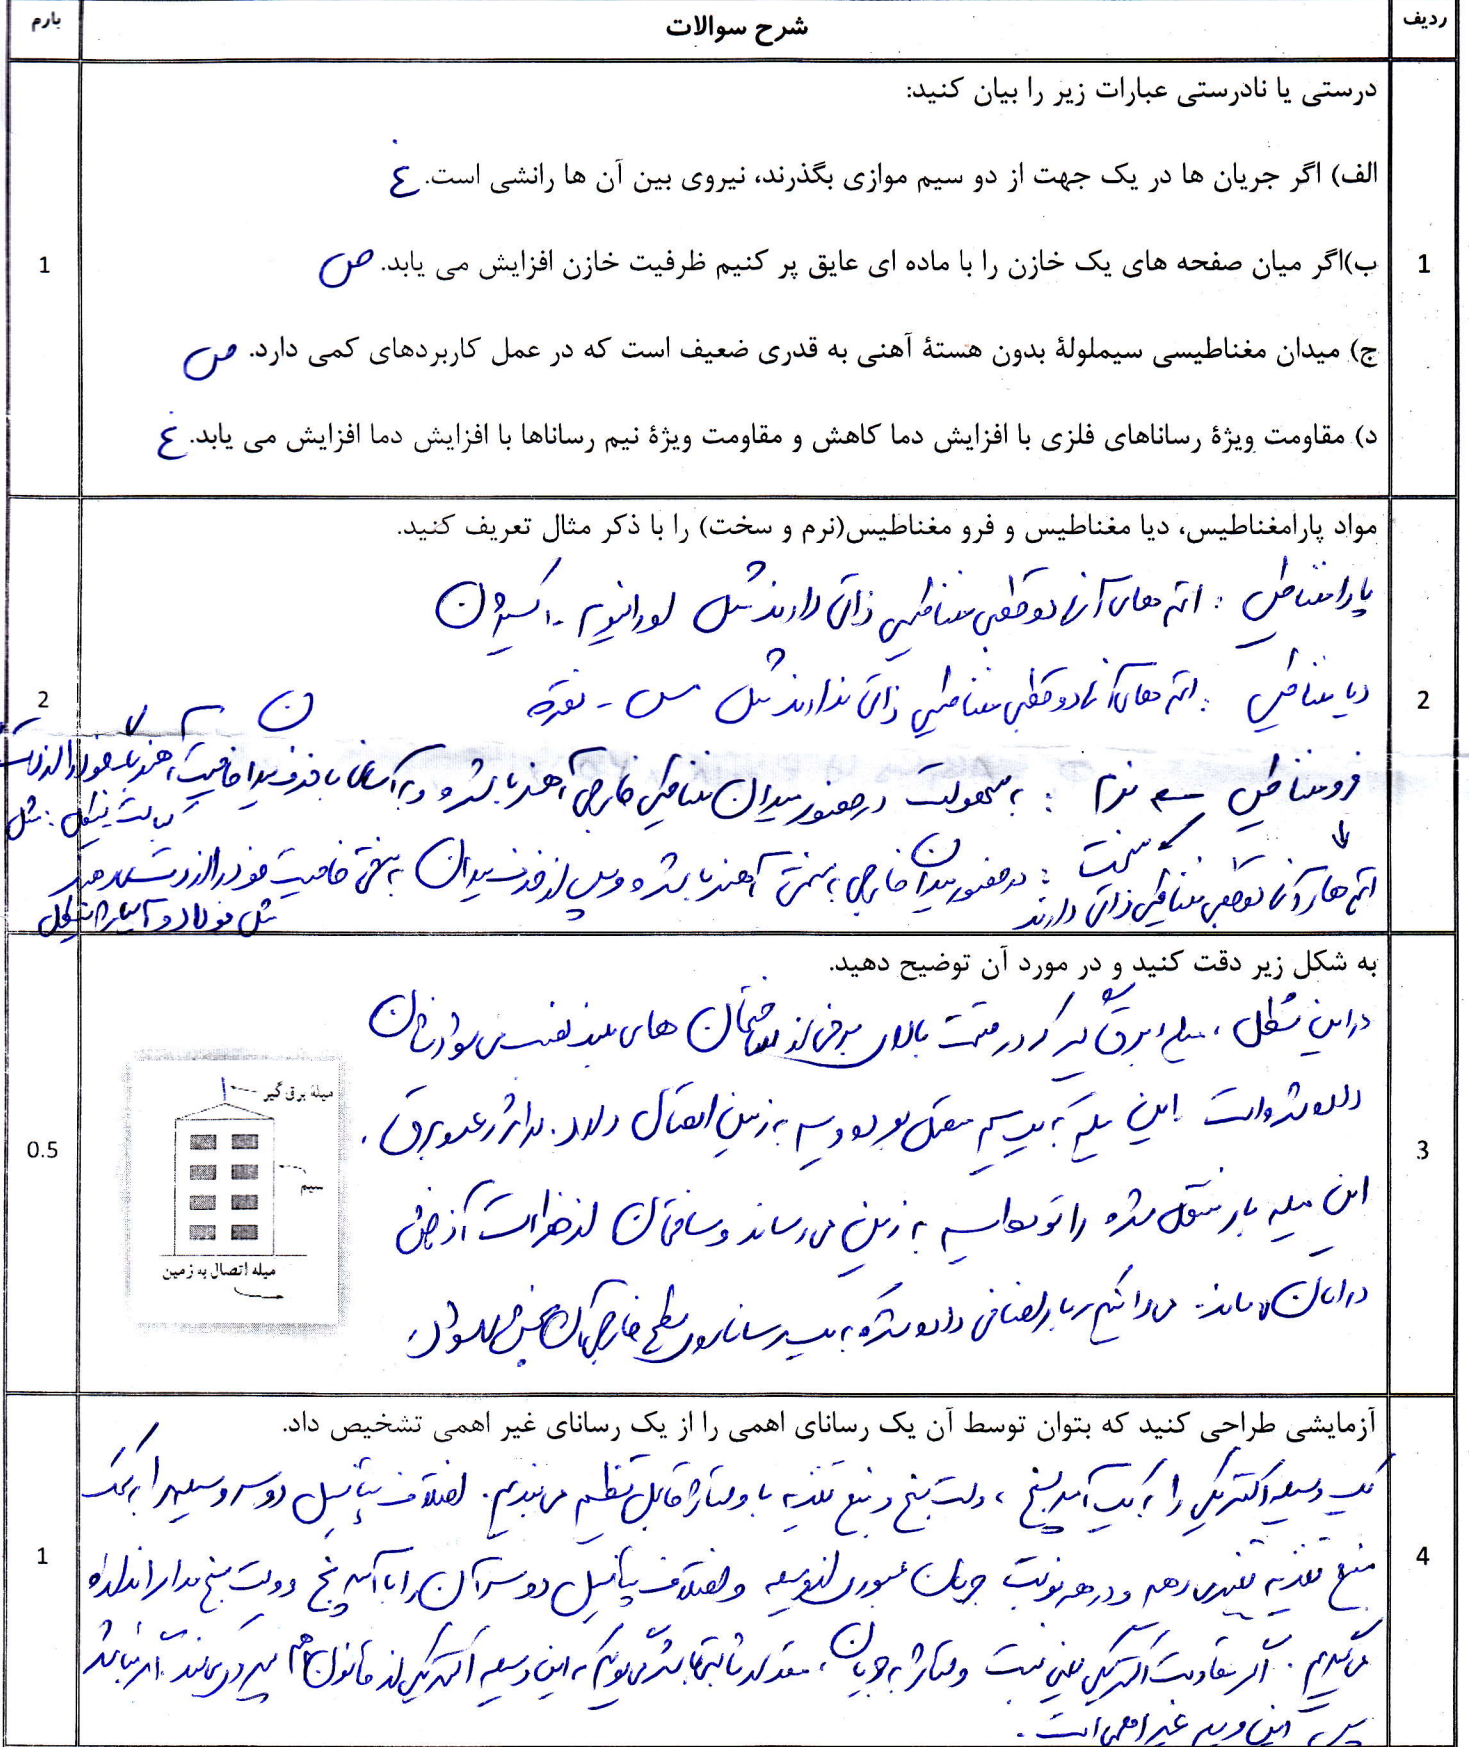 ردیف
شرح سوالات
بارم
درستی یا نادرستی عبارات زیر را بیان کنید:
الف) اگر جریان ها در یک جهت از دو سیم موازی بگذرند، نیروی بین آن ها رانشی است. غ
1
ب)اگر میان صفحه های یک خازن را با ماده ای عایق پر کنیم ظرفیت خازن افزایش می یابد. ص
1
ج) میدان مغناطیسی سیملولهٔ بدون هستهٔ آهنی به قدری ضعیف است که در عمل کاربردهای کمی دارد. ص
د) مقاومت ویژهٔ رساناهای فلزی با افزایش دما کاهش و مقاومت ویژهٔ نیم رساناها با افزایش دما افزایش می یابد. غ
مواد پارامغناطیس، دیا مغناطیس و فرو مغناطیس(نرم و سخت) را با ذکر مثال تعریف کنید.
پارامغناطیس : اتم های آنها دوقطبی مغناطیسی ذاتی دارند مثل اورانیوم - اکسیژن
2
دیا مغناطیس : اتم های آنها دوقطبی مغناطیسی ذاتی ندارند مثل مس - نقره
2
فرومغناطیس نرم : به سهولت در حضور میدان مغناطیسی خارجی آهنربا شده و به آسانی با حذف میدان خاصیت آهنربایی خود را
سخت : در حضور میدان خارجی به سختی آهنربا شده و پس از حذف میدان به سختی خاصیت خود را از دست می دهد
اتم های آنها دوقطبی مغناطیسی ذاتی دارند
مثل فولاد و آلیاژ نیکل
به شکل زیر دقت کنید و در مورد آن توضیح دهید.
در این شکل ، میله برق گیر که در قسمت بالای برخی از ساختمان های بلند نصب می شود نشان
داده شده است این میله به یک سیم متصل بوده و سیم به زمین اتصال دارد. در اثر رعد و برق ،
این میله بار منتقل شده را توسط سیم به زمین می رساند و ساختمان از خطرات آذرخش
در امان می ماند. می دانیم بار اضافی داده شده به یک رسانا روی سطح خارجی آن پخش می شود.
3
0.5
میله برق گیر
سیم
میله اتصال به زمین
آزمایشی طراحی کنید که بتوان توسط آن یک رسانای اهمی را از یک رسانای غیر اهمی تشخیص داد.
یک وسیله الکتریکی را به یک آمپرسنج ، ولت سنج و منبع تغذیه با ولتاژ قابل تنظیم می بندیم. اختلاف پتانسیل دو سر وسیله را به کمک
منبع تغذیه تغییر می دهیم و در هر نوبت جریان عبوری از وسیله و اختلاف پتانسیل دو سر آن را با آمپرسنج و ولت سنج مدار اندازه
4
1
می گیریم. اگر مقاومت الکتریکی یعنی نسبت ولتاژ به جریان ، مقدار ثابتی باشد می گوییم این وسیله الکتریکی از قانون اهم پیروی می کند. اگر نباشد
پس این وسیله غیر اهمی است.